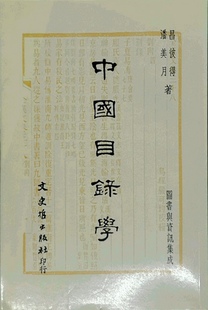 昌彼得
潘美月
著
圖書與資訊集成
中國目錄學
文史哲出版社印行